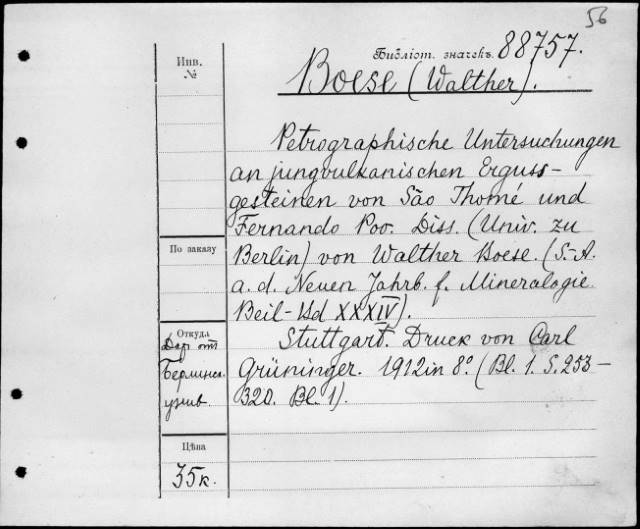 56
Библіот. значекъ 88757.
Boese (Walther).
Инв.
№
Petrographische Untersuchungen
an jungvulkanischen Erguss-
gesteinen von São Thomé und
Fernando Poo. Diss. (Univ. zu
Berlin) von Walther Boese. (S.-A.
a. d. Neuen Jahrb. f. Mineralogie
Beil-Bd XXXIV).
Stuttgart. Druck von Carl
Grüninger. 1912 in 8º. (Bl. 1. S. 253-
320. Bl. 1).
По заказу
Откуда
Дар от
Берлинск.
унив.
Цѣна
35к.